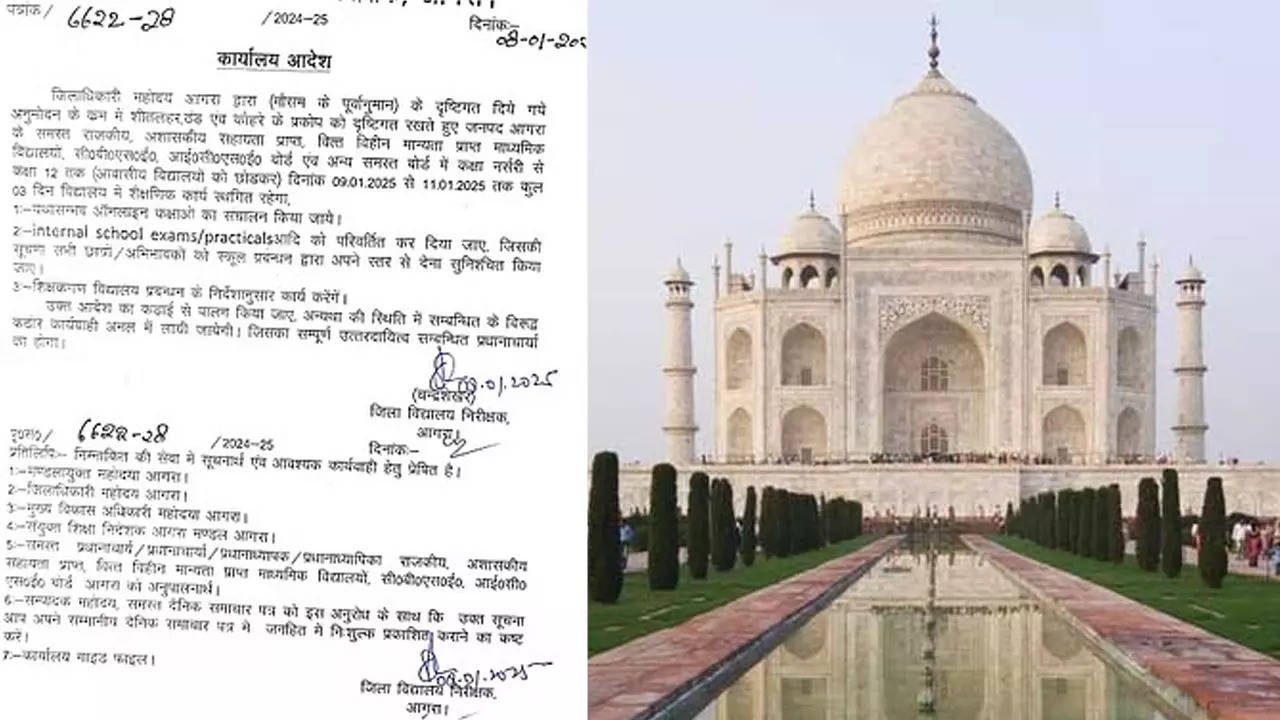 पत्रांक/ 6622-28 /2024-25 दिनांक:-
08-01-202
कार्यालय आदेश
जिलाधिकारी महोदय आगरा द्वारा (मौसम के पूर्वानुमान) के दृष्टिगत दिये गये
अनुमोदन के क्रम में शीतलहर,ठंड एवं कोहरे के प्रकोप को दृष्टिगत रखते हुए जनपद आगरा
के समस्त राजकीय, अशासकीय सहायता प्राप्त, वित्त विहीन मान्यता प्राप्त माध्यमिक
विद्यालयो, सी0बी0एस0ई0, आई0सी0एस0ई0 बोर्ड एंव अन्य समस्त बोर्ड में कक्षा नर्सरी से
कक्षा 12 तक (आवासीय विद्यालयो को छोडकर) दिनांक 09.01.2025 से 11.01.2025 तक कुल
03 दिन विद्यालय में शैक्षणिक कार्य स्थगित रहेगा,
1:-यथासम्भव ऑनलाइन कक्षाओं का संचालन किया जाये।
2:-internal school exams/practicalsआदि को परिवर्तित कर दिया जाए, जिसकी
सूचना सभी छात्रों/अभिभावकों को स्कूल प्रबंधन द्वारा अपने स्तर से देना सुनिश्चित किया
जाए।
3:-शिक्षकगण विद्यालय प्रबन्धन के निर्देशानुसार कार्य करेगें।
उक्त आदेश का कडाई से पालन किया जाए, अन्यथा की स्थिति में सम्बन्धित के विरूद्ध
कठोर कार्यवाही अमल में लायी जायेगी। जिसका सम्पूर्ण उत्तरदायित्व सम्बन्धित प्रधानाचार्य
का होगा।
08.01.2025
(चन्द्रशेखर)
जिला विद्यालय निरीक्षक,
आगरा।
पृ0सं0/ 6622-28 /2024-25 दिनांक:-
प्रतिलिपि:- निम्नांकित की सेवा में सूचनार्थ एंव आवश्यक कार्यवाही हेतु प्रेषित है।
1:-मण्डलायुक्त महोदया आगरा।
2:-जिलाधिकारी महोदय आगरा।
3:-मुख्य विकास अधिकारी महोदया आगरा।
4:-संयुक्त शिक्षा निदेशक आगरा मण्डल आगरा।
5:-समस्त प्रधानाचार्य/प्रधानाचार्या/प्रधानाध्यापक/प्रधानाध्यापिका राजकीय, अशासकीय
सहायता प्राप्त, वित्त विहीन मान्यता प्राप्त माध्यमिक विद्यालयो, सी0बी0एस0ई0, आई0सी0
एस0ई0 बोर्ड आगरा को अनुपालनार्थ।
6:-सम्पादक महोदय, समस्त दैनिक समाचार पत्र को इस अनुरोध के साथ कि उक्त सूचना
आप अपने सम्मानीय दैनिक समाचार पत्र मे जनहित में निःशुल्क प्रकाशित कराने का कष्ट
करें।
7:-कार्यालय गाइड फाइल।
08.01.2025
जिला विद्यालय निरीक्षक,
आगरा।